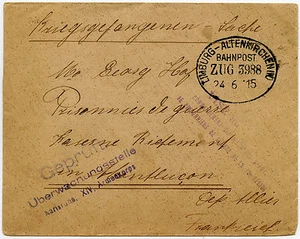 Kriegsgefangenen-Sache
LIMBURG-ALTENKIRCHEN
BAHNPOST
ZUG 3988
24 6 15
Mr Georg
Prisonnier de guerre
Caserne Richemont
Montluçon
Dép Allier
Frankreich
Geprüft
Überwachungsstelle
XIV. Armeekorps